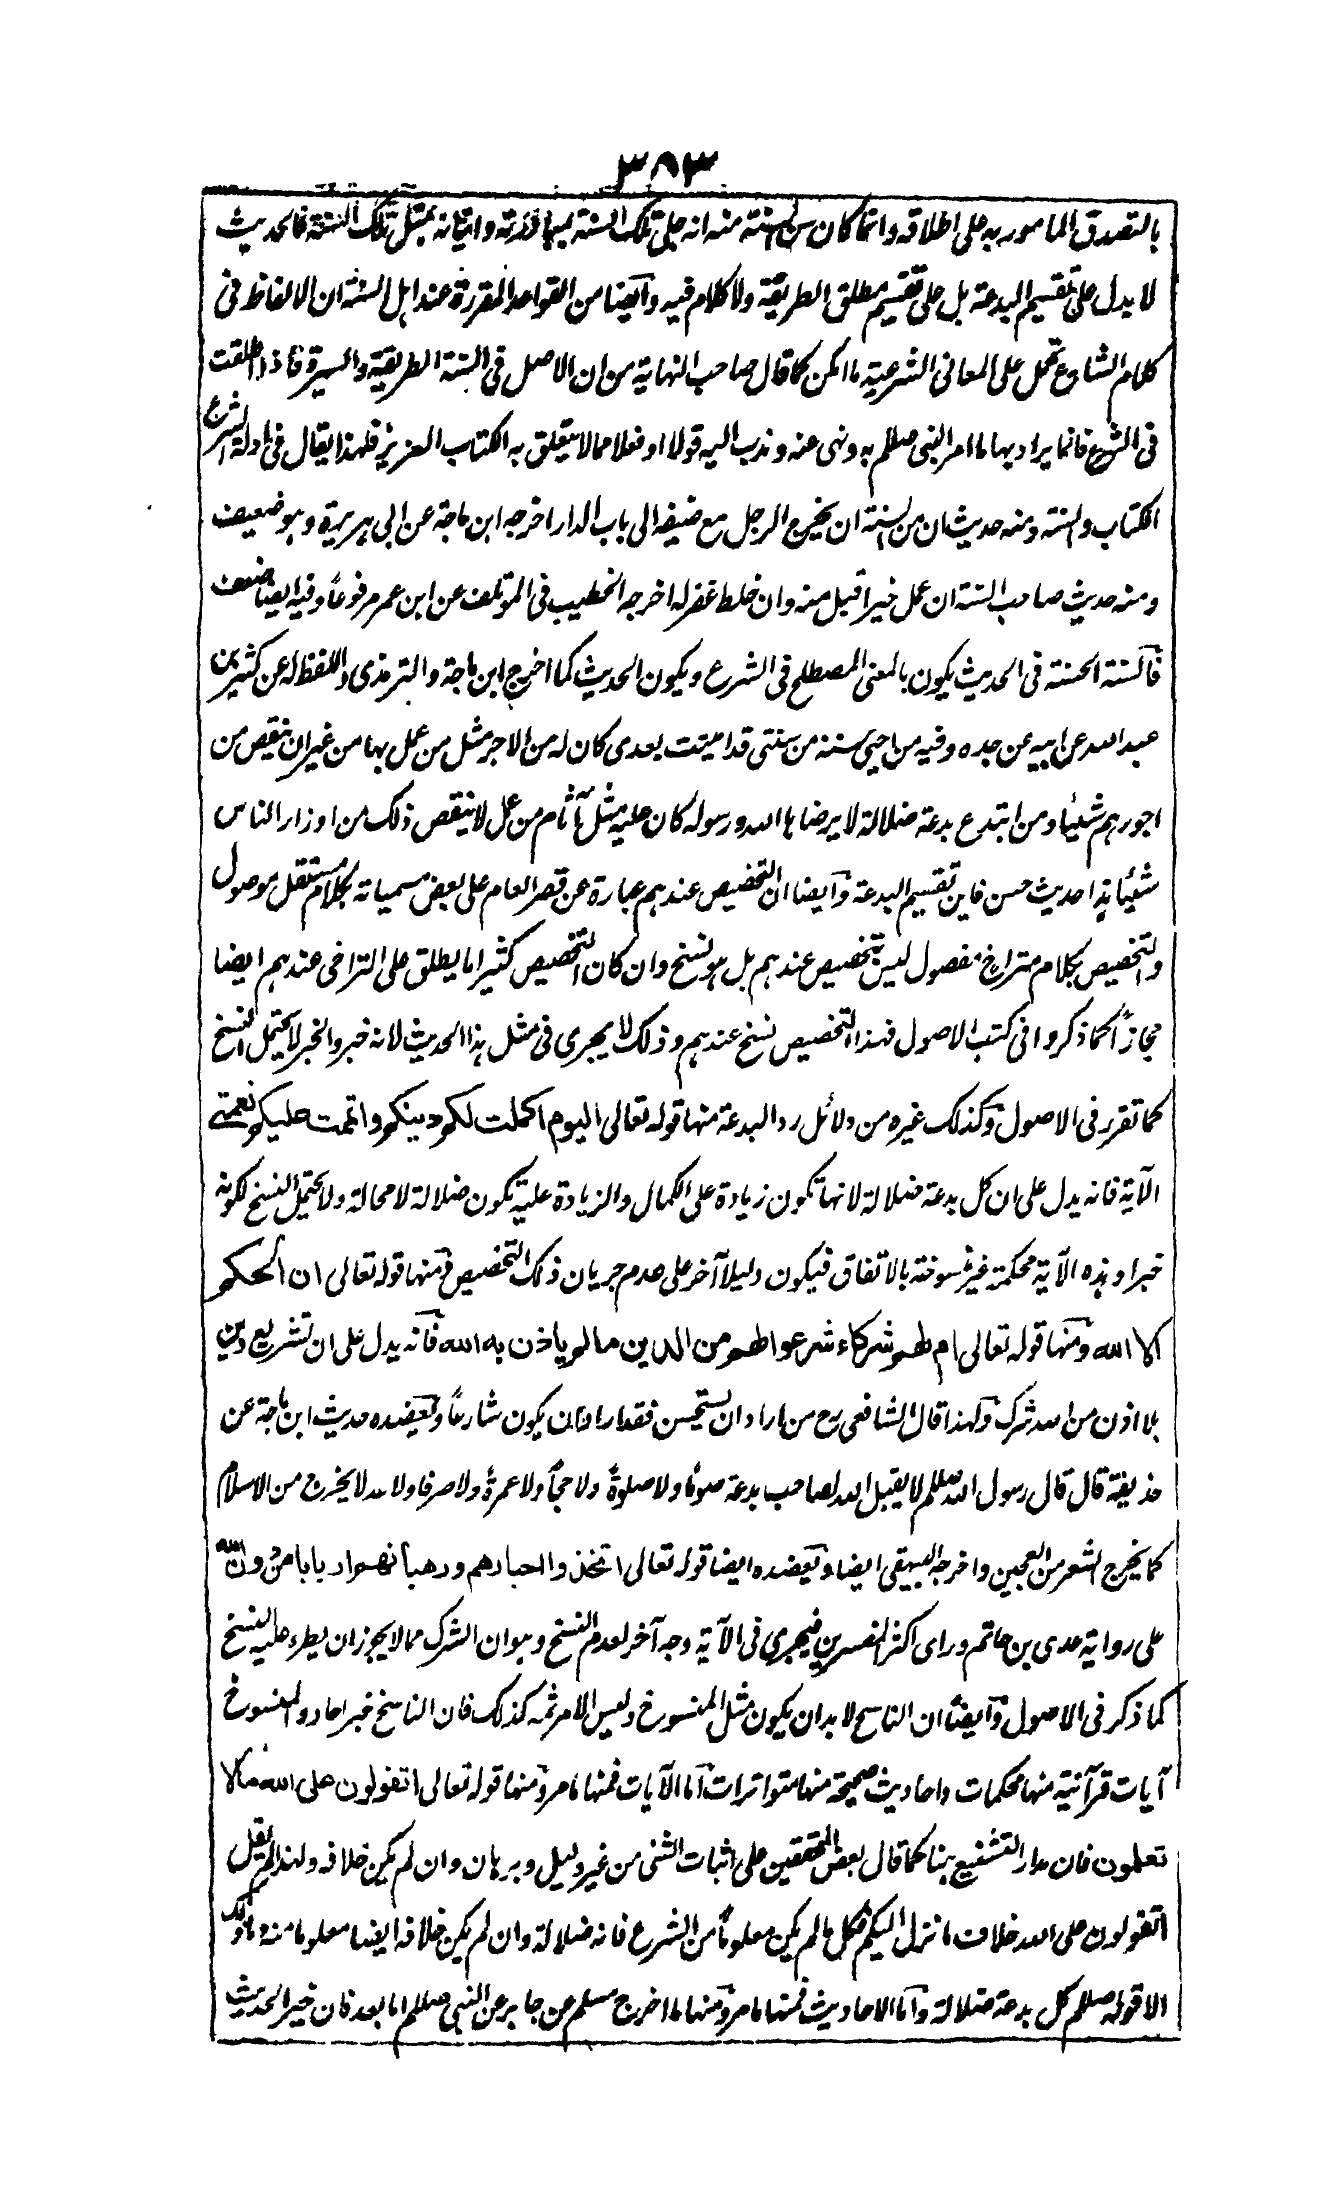 ٣٨٣
بالتصدق المامور به على اطلاقه وانما كان سن السنة منه انه جلى تلك السنة واتيانه بمثل تلك السنة فالحديث
لا يدل على تقسيم البدعة بل على تقسيم مطلق الطريقة ولا كلام فيه وايضا من القواعد المقررة عند اهل السنة ان الالفاظ فى
كلام الشارع تحمل على المعانى الشرعية ما امكن كما قال صاحب النهاية من ان الاصل فى السنة الطريقة والسيرة فاذا اطلقت
فى الشرع فانما يراد بها ما امر النبى صللم به ونهى عنه وندب اليه قولا او فعلا مما لا يتعلق به الكتاب العزيز فلهذا يقال فى ادلة الشرع
الكتاب والسنة ومنه حديث ان من السنة ان يخرج الرجل مع ضيفه الى باب الدار اخرجه ابن ماجة عن ابى هريرة وهو ضعيف
ومنه حديث صاحب السنة ان عمل خيرا قبل منه وان خلط غفر له اخرجه الخطيب فى المؤتلف عن ابن عمر مرفوعاً وفيه ايضا ضعف
فالسنة الحسنة فى الحديث يكون بالمعنى المصطلح فى الشرع ويكون الحديث كما اخرج ابن ماجة والترمذى واللفظ له عن كثير بن
عبد الله عن ابيه عن جده وفيه من احيى سنة من سنتى قد اميتت بعدى كان له من الاجر مثل من عمل بها من غير ان ينقص من
اجورهم شيئا ومن ابتدع بدعة ضلالة لا يرضاها الله ورسوله كان عليه مثل آثام من عمل لا ينقص ذلك من اوزار الناس
شيئا هذا حديث حسن فاين تقسيم البدعة وايضا ان التخصيص عندهم عبارة عن قصر العام على بعض مسمياته بكلام مستقل موصول
والتخصيص بكلام متراخ مفصول ليس بتخصيص عندهم بل هو نسخ وان كان التخصيص كثيرا ما يطلق على التراخى عندهم ايضا
مجازاً كما ذكروا فى كتب الاصول فهذا التخصيص نسخ عندهم وذلك لا يجرى فى مثل هذا الحديث لانه خبر والخبر لا يحتمل النسخ
كما تقرر فى الاصول وكذلك غيره من دلائل رد البدعة منها قوله تعالى اليوم اكملت لكم دينكم واتممت عليكم نعمتى
الآية فانه يدل على ان كل بدعة ضلالة لانها تكون زيادة على الكمال والزيادة عليه تكون ضلالة لا محالة ولا يحتمل النسخ لكونه
خبرا وهذه الآية محكمة غير منسوخة بالاتفاق فيكون دليلاً آخر على عدم جريان ذلك التخصيص ومنها قوله تعالى ان الحكم
الا الله ومنها قوله تعالى ام لهم شركاء شرعوا لهم من الدين ما لم ياذن به الله فانه يدل على ان تشريع دين
بلا اذن من الله شرك ولهذا قال الشافعى رح من اراد ان يستحسن فقد اراد ان يكون شارعاً ويعضده حديث ابن ماجة عن
حذيفة قال قال رسول الله صللم لا يقبل الله لصاحب بدعة صوماً ولا صلوةً ولا حجاً ولا عمرةً ولا صرفا ولا عدلا يخرج من الاسلام
كما يخرج الشعر من العجين واخرجه البيهقى ايضا ويعضده ايضا قوله تعالى اتخذوا احبارهم ورهبانهم اربابا من دون الله
على رواية عدى بن حاتم وراى اكثر المفسرين فيجرى فى الآية وجه آخر لعدم النسخ وهو ان الشرك مما لا يجوز ان يطرء عليه النسخ
كما ذكر فى الاصول وايضاً ان الناسخ لا بد ان يكون مثل المنسوخ وليس الامر ثمه كذلك فان الناسخ خبر احاد والمنسوخ
آيات قرآنية منها محكمات واحاديث صحيحة منها متواترات اما الآيات فمنها ما مر ومنها قوله تعالى اتقولون على الله ما لا
تعلمون فان مدار التشنيع هنا كما قال بعض المحققين على اثبات الشئ من غير دليل وبرهان وان لم يكن خلافه ولهذا لم يقل
اتقولون على الله خلاف ما نزل اليكم فكل ما لم يكن معلوماً من الشرع فانه ضلالة وان لم يكن خلافه ايضا معلوما منه وما ذلك
الا قوله صللم كل بدعة ضلالة واما الاحاديث فمنها ما مر ومنها ما اخرج مسلم عن جابر عن النبى صللم اما بعد فان خير الحديث